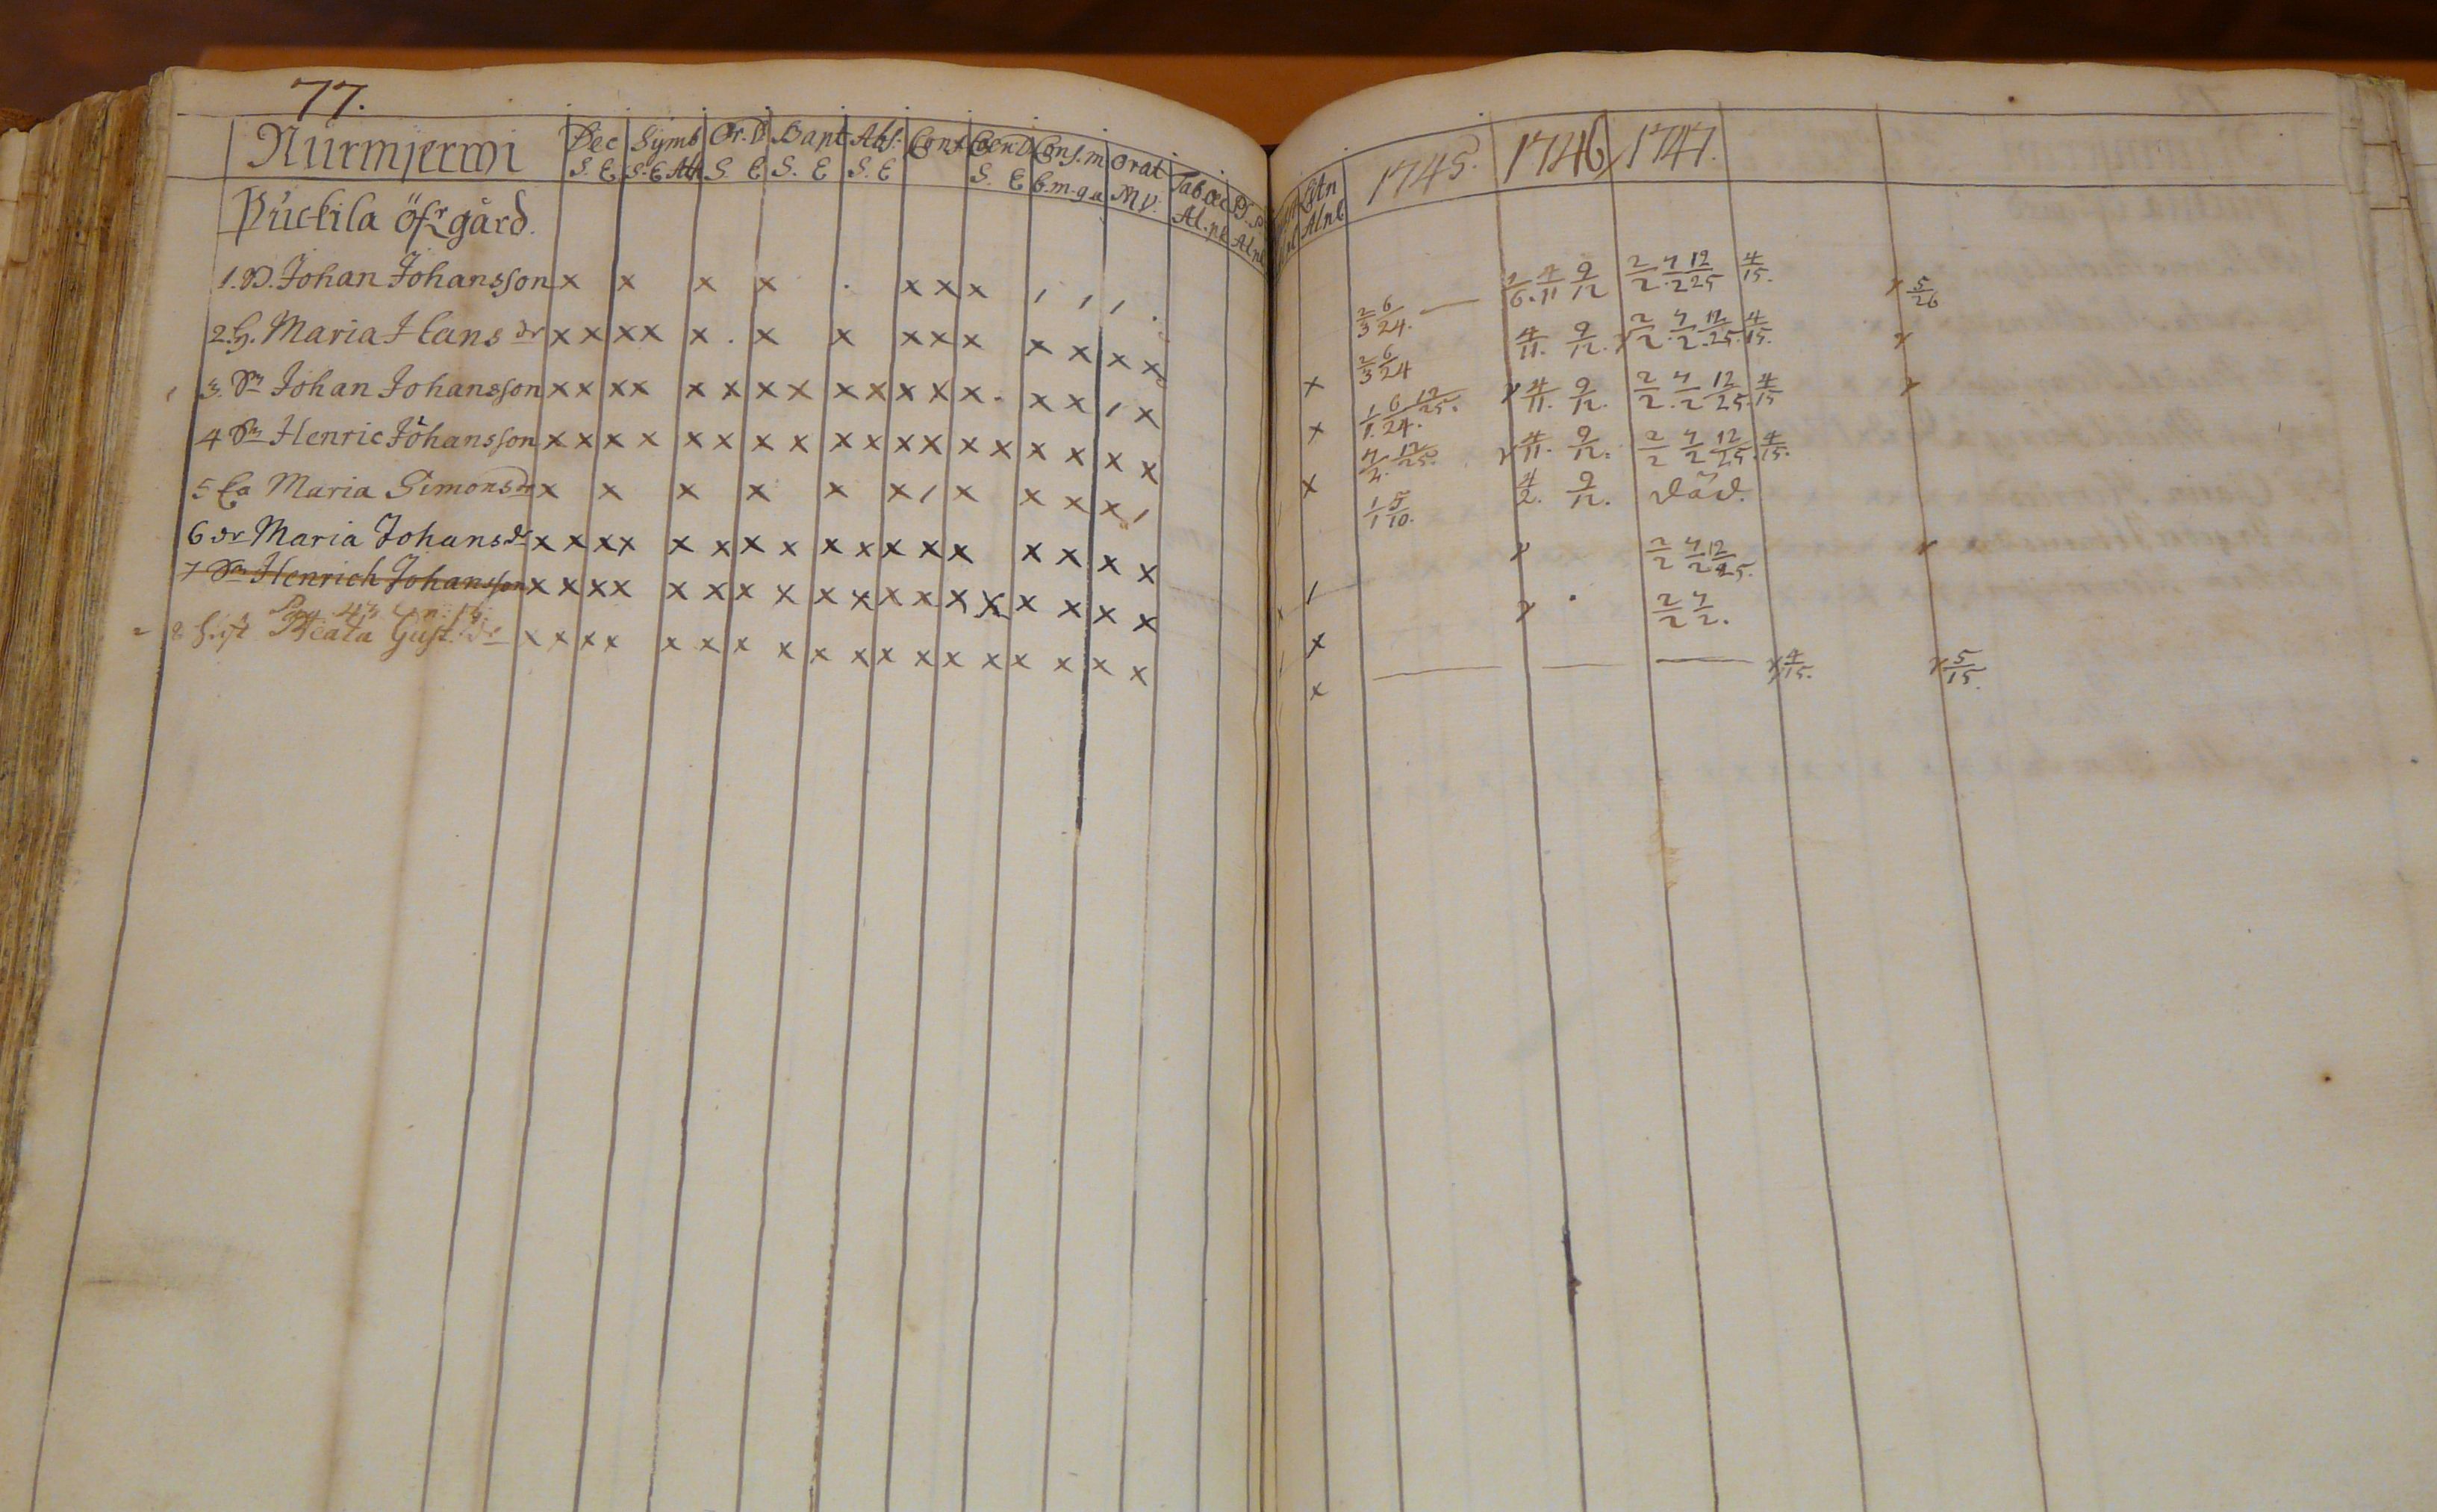 77.
Nurmjerwi
Dec Symb Or.D Bapt Abs. Conf CoenD Cons.m Orat Tab.oec
S. E S.E Ath S. E S. E S. E S. E C.m.g.a M V. Al. nl Al nl
Puckila öfr gård.
1. D. Johan Johansson x x x x . x x x , , , .
2. H. Maria Hans dr x x x x x . x x x x x x x x x
3. Sn Johan Johansson x x x x x x x x x x x x x . x x , x
4 Sn Henric Johansson x x x x x x x x x x x x x x x x x x
5 Ea Maria Simons dr x x x x x x / x x x x /
6 dr Maria Johans dr x x x x x x x x x x x x x x x x x
7 Sn Henrich Johansson x x x x x x x x x x x x x x x x x x
8 Beata Gust. dr x x x x x x x x x x x x x x x x x x
Al nl 1745. 1746 1747.
2/3 6/24. — 4/11 9/12 2/2. 4/2 12/25 4/15. 5/26
2/3 6/24 4/11. 9/12. 2/2. 4/2. 12/25. 4/15.
x 1/1. 6/24. 12/25. 4/11. 9/12. 2/2. 4/2 12/25. 4/15
x 4/2. 12/25. 4/11. 9/12. 2/2 4/2 12/25. 4/15.
x 1/1 5/10. 4/2. 9/12. död.
/ 2/2 4/2 12/25.
x . 2/2 4/2.
x — — — 4/15. 5/15.